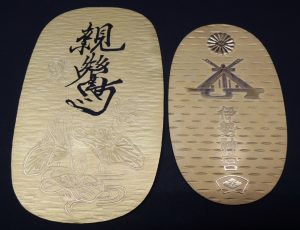 親鸞
伊勢神宮